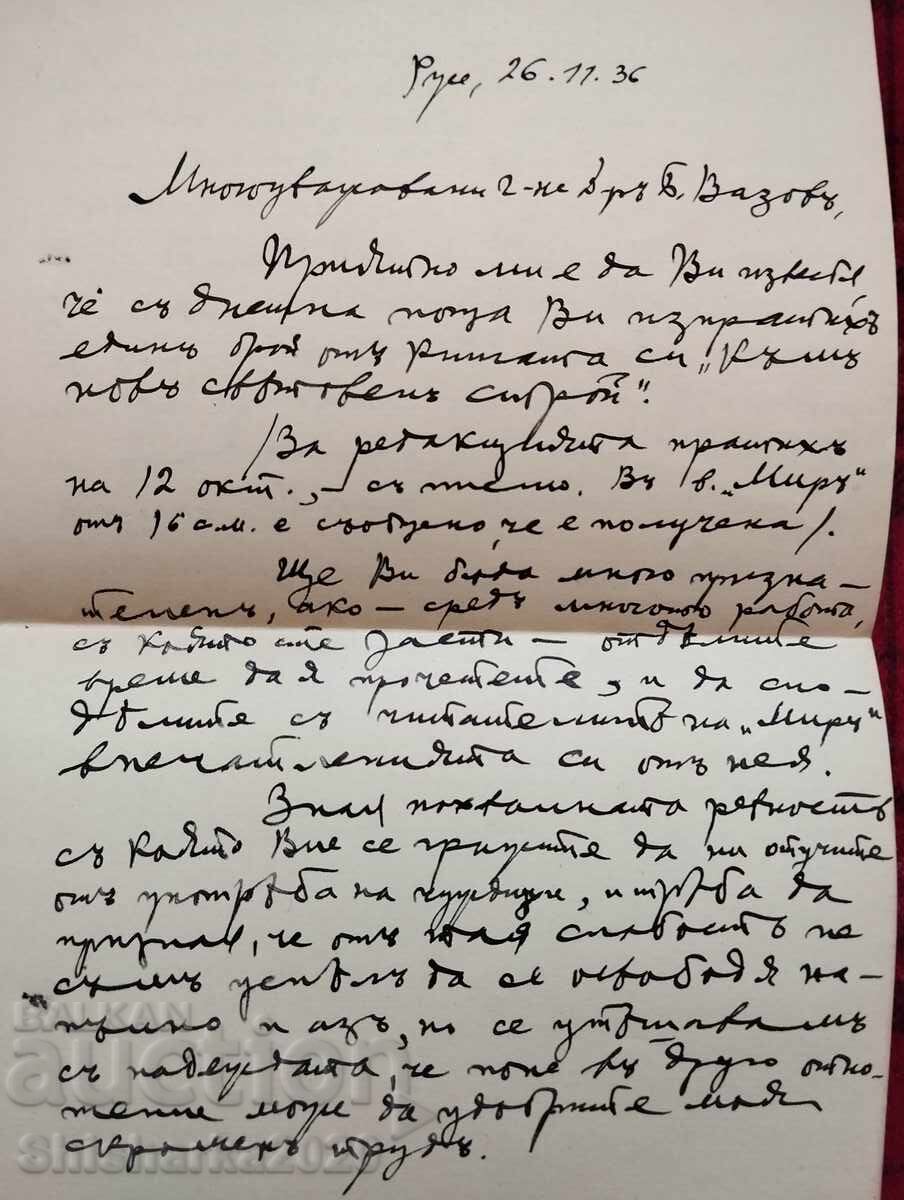 Русе, 26.11.36
Многоуважаеми г-не Д-ръ Б. Вазовъ,
Приятно ми е да Ви известя
че съ днешна поща Ви изпратихъ
единъ брой отъ книгата си „Къмъ
новъ свѣтовенъ строй".
/За редакцията пратихъ
на 12 окт., – съ писмо. Въ в. „Миръ"
отъ 16 с.м. е съобщено, че е получена/.
Ще Ви бѫда много призна-
теленъ, ако – средъ многото работа,
съ която сте заети – отдѣлите
време да я прочетете, и да спо-
дѣлите съ читателитѣ на „Миръ"
впечатленията си отъ нея.
Зная похвалната ревность
съ която Вие се грижите да ни отучите
отъ употрѣба на чуждици, и трѣба да
призная, че отъ тая слабость не
съмъ успѣлъ да се освободя на-
пълно и азъ, но се утѣшавамъ
съ надеждата, че поне въ друго отно-
шение може да удобрите моя
скроменъ трудъ.
BALKAN
auction
Shisharka202